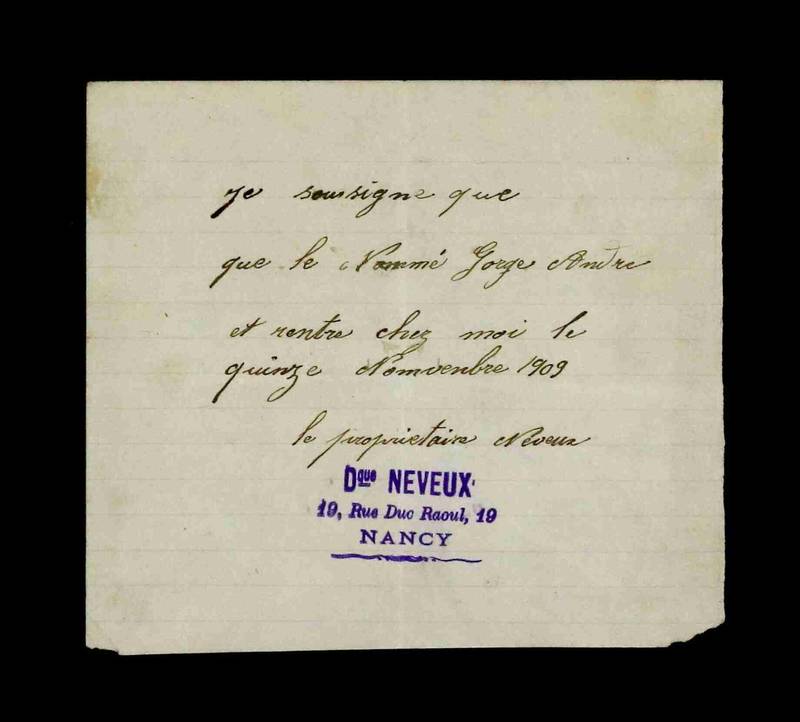 je soussigne que
que le Nommé Gorge Andre
et rentre chez moi le
quinze Nomvenbre 1909
le proprietaire Neveux
Dque NEVEUX
19, Rue Duc Raoul, 19
NANCY